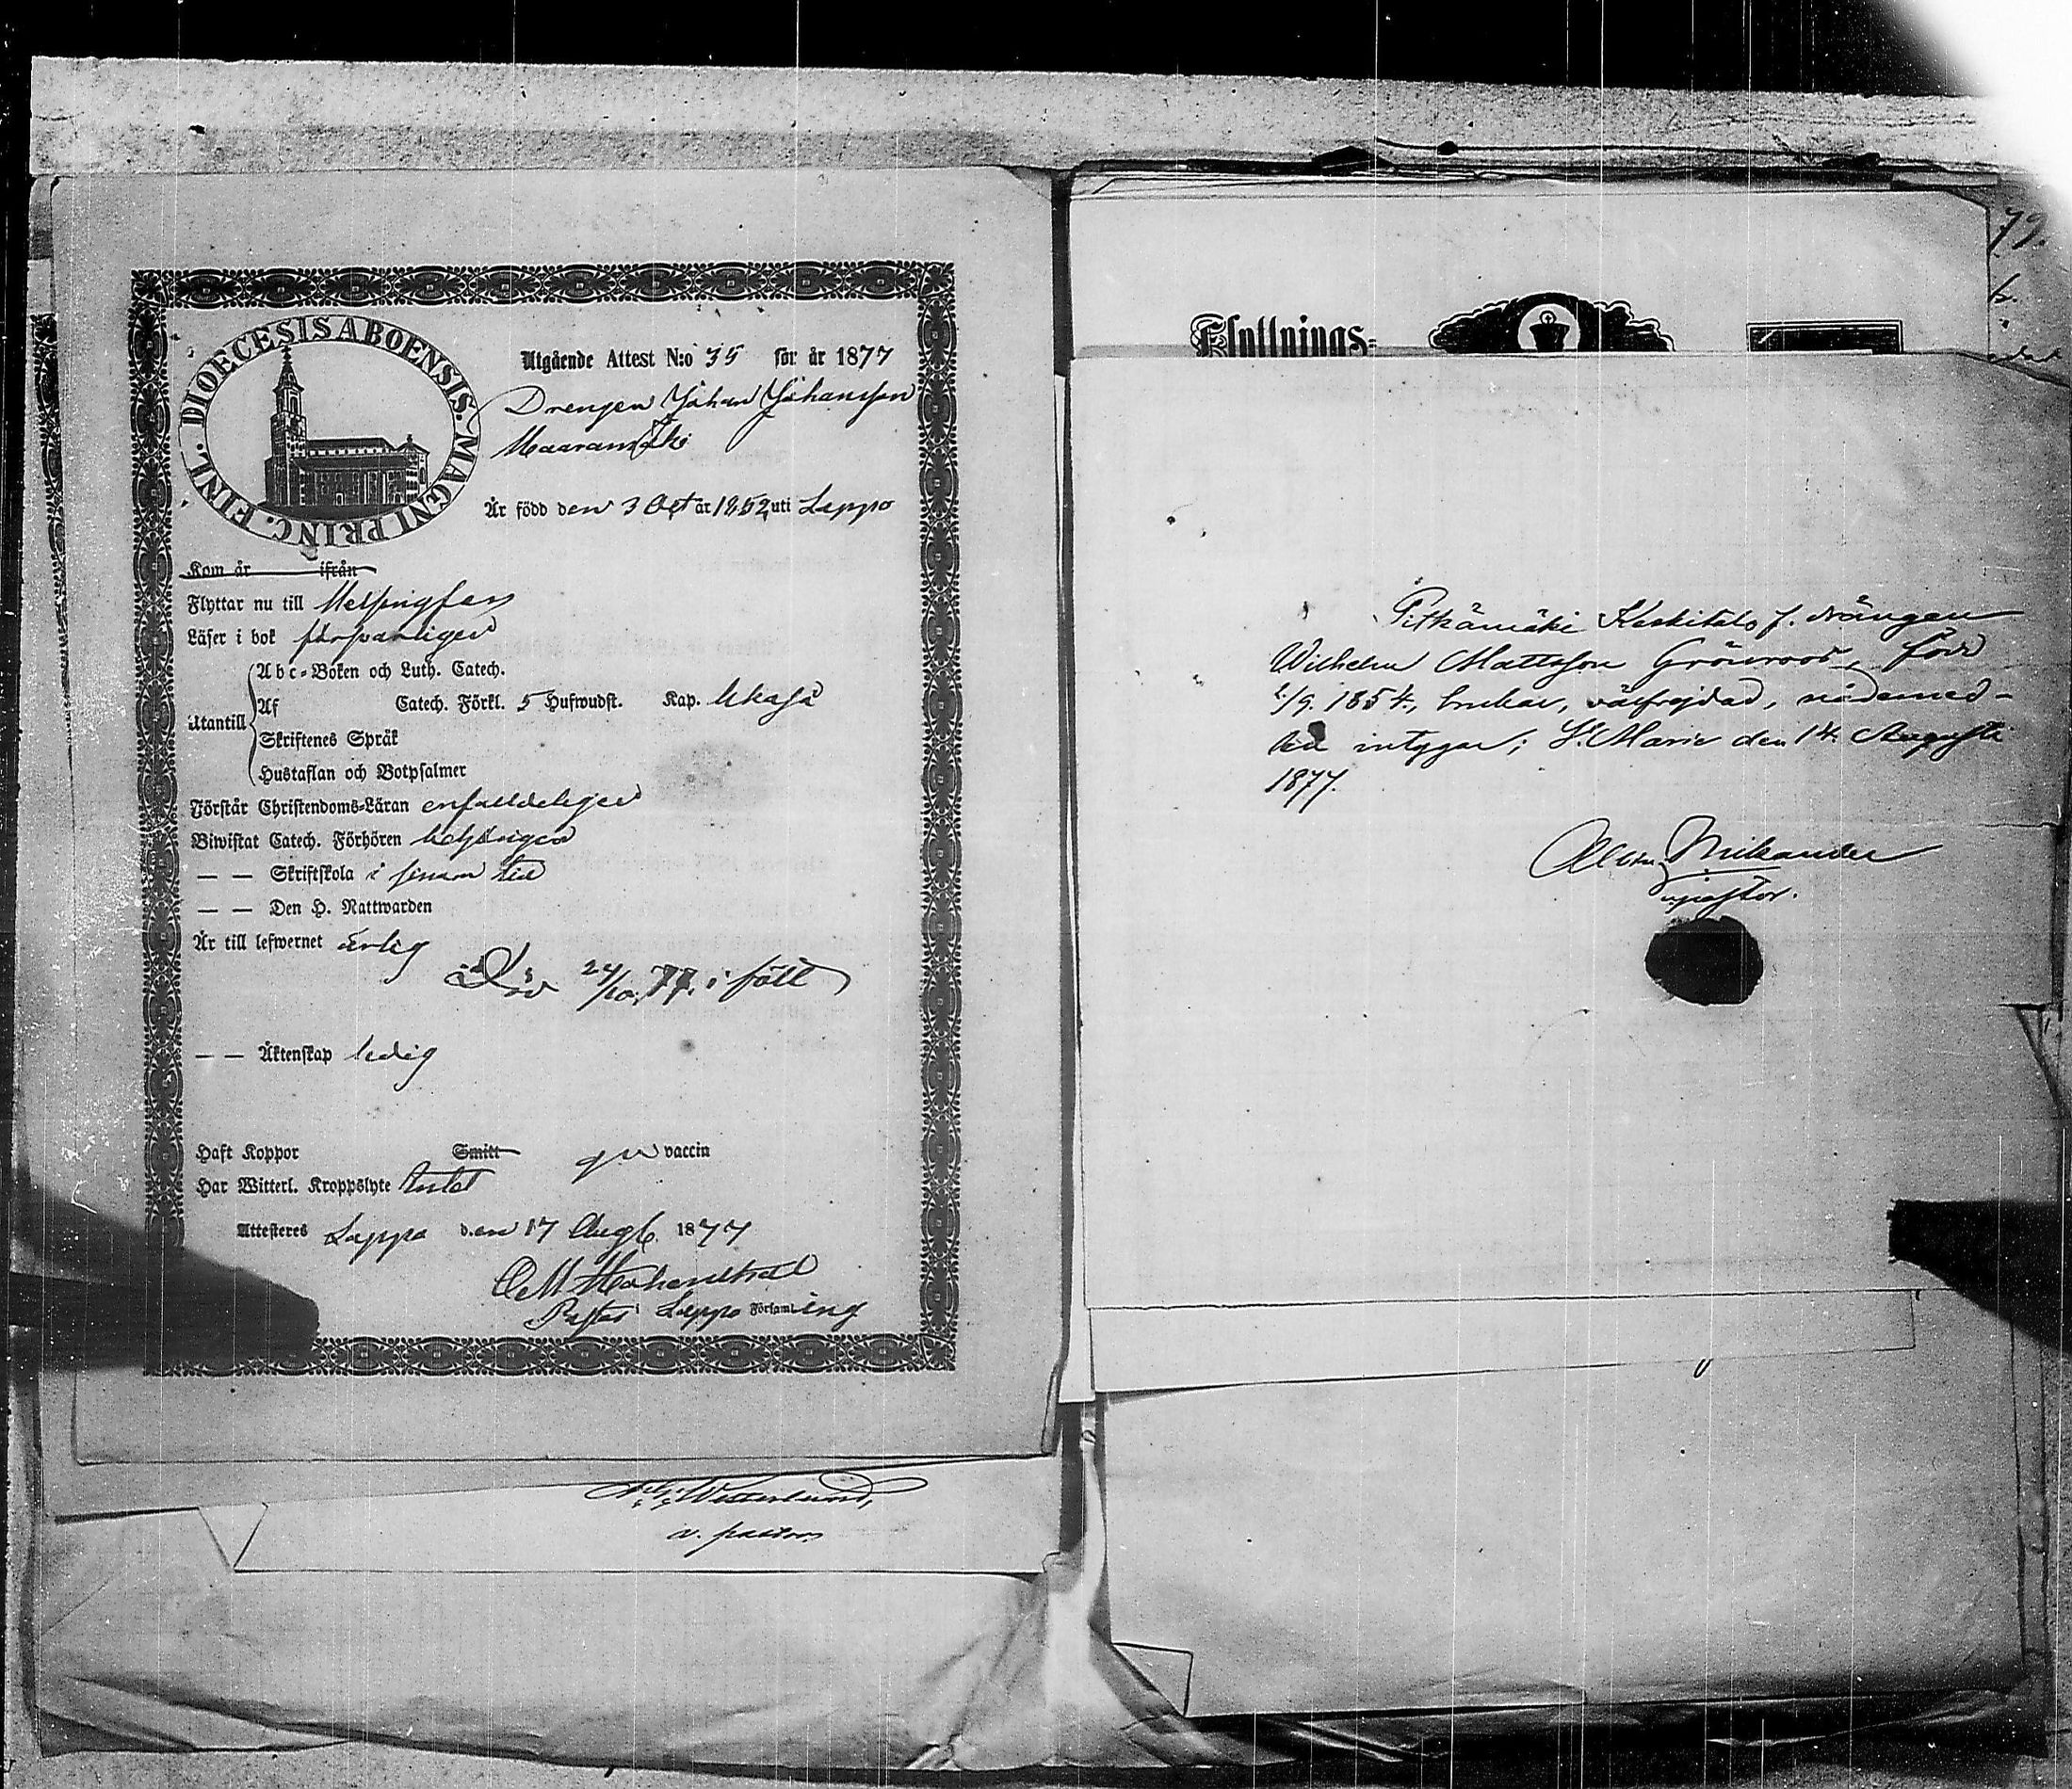 DIOECESIS ABOENSIS. MAGNI PRINC. FINL.
Utgående Attest N:o 35 för år 1877
Drengen Johan Johansson
Maaramäki
Är född den 3 Oct år 1852 uti Lappo
Kom år ifrån
Flyttar nu till Helsingfors
Läser i bok försvarligen
Utantill
Abc-Boken och Luth. Catech.
Af Catech. Förkl. 5 Hufwudst. Kap.
Skriftenes Språk
Hustaflan och Botpsalmer
Förstår Christendoms-Läran enfaldeligen
Biwistat Catech. Förhören behörigen
— — Skriftskola i sinom tid
— — Den H. Nattwarden
Är till lefwernet ärlig
Död 24/10 77. i fält
— — Äktenskap ledig
Haft Koppor Smitt vaccin
Har Witterl. Kroppslyte Intet
Attesteres Lappo den 17 Aug. 1877
Pastor i Lappo Församling
A. G. Westerlund,
v. pastor
79.
Flyttnings-
Pitkämäki Keskitalo f. drängen
Wilhelm Mattsson Grönroos, född
/9. 1854, brukar, välfrejdad, nådemed-
len intygar; S:t Marie den 14 Augusti
1877.
Mikander
pastor.